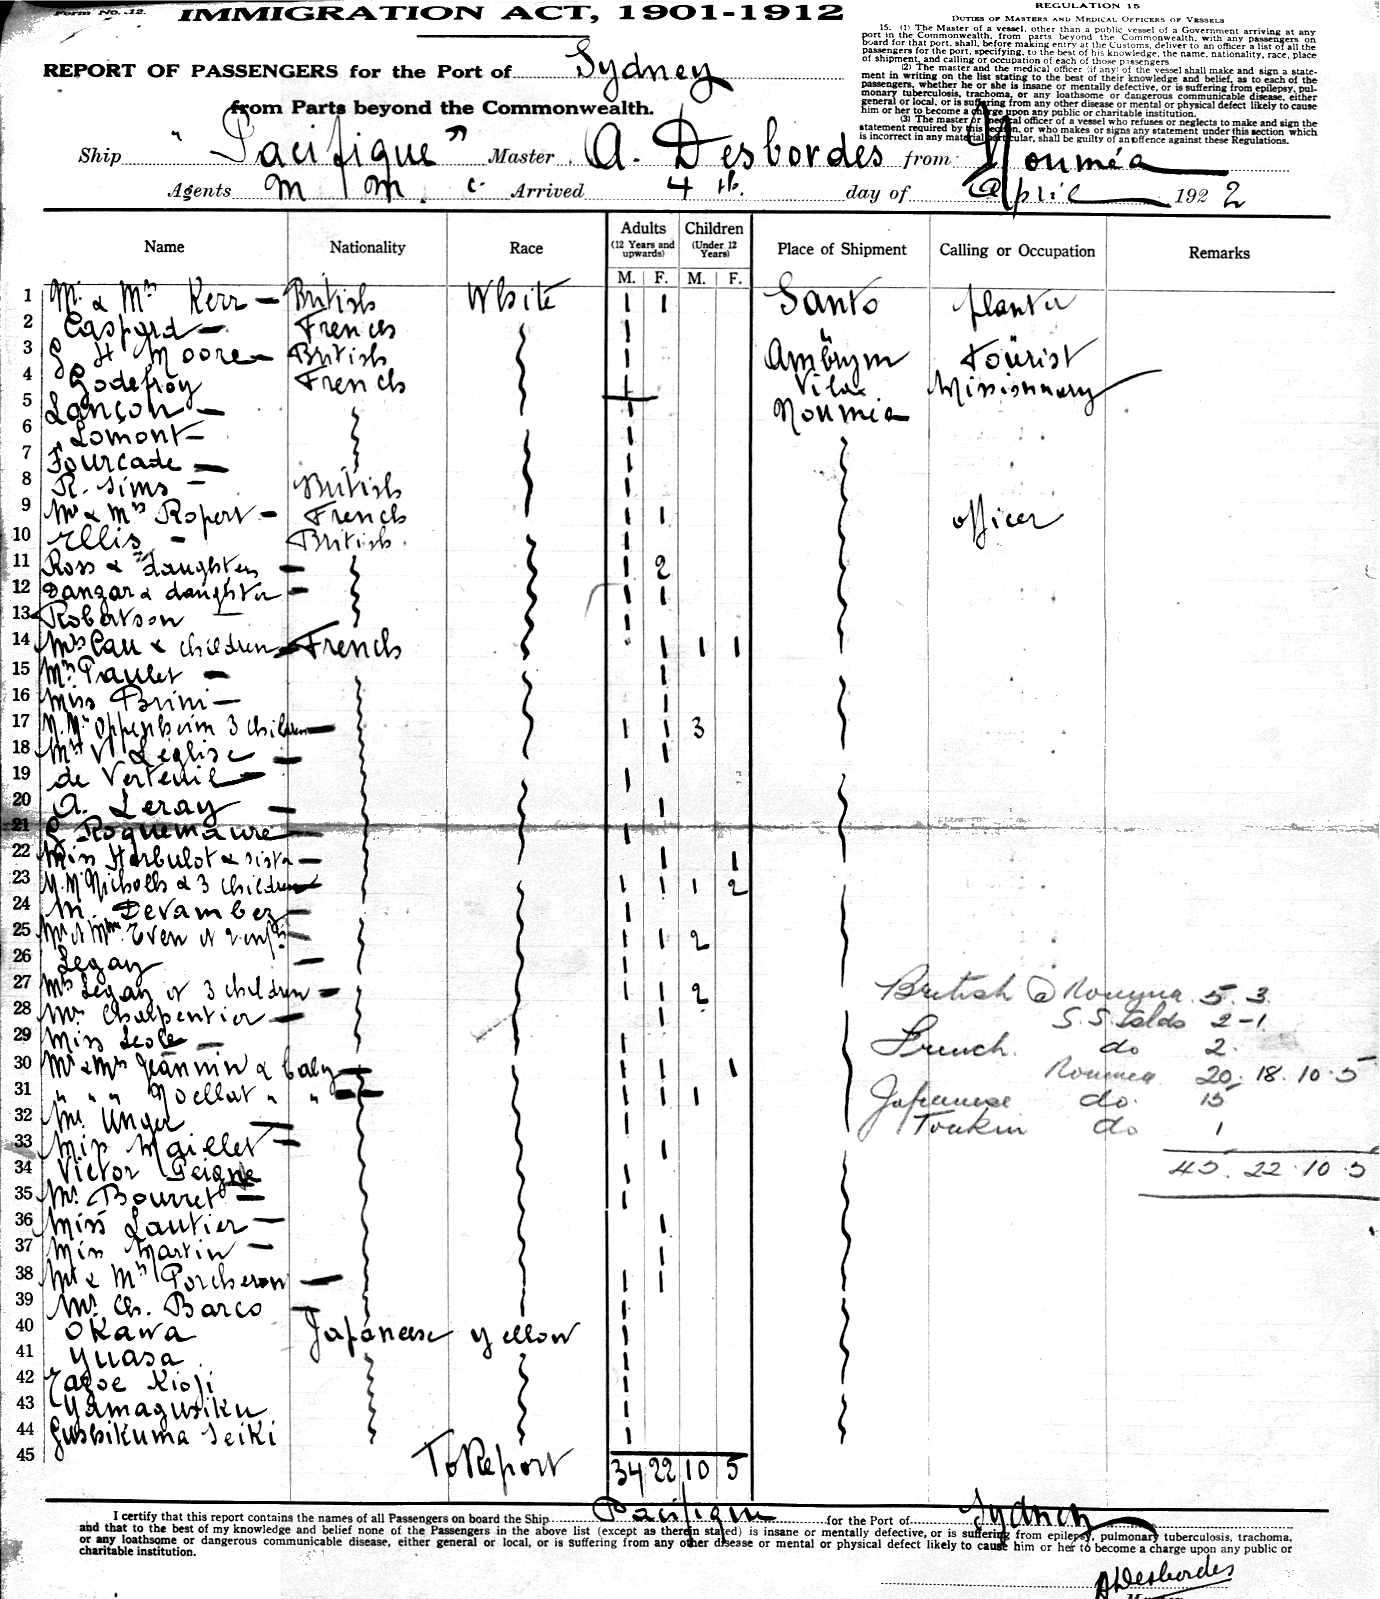 Form No. 12.
IMMIGRATION ACT, 1901-1912
REPORT OF PASSENGERS for the Port of Sydney
from Parts beyond the Commonwealth.
REGULATION 15
DUTIES OF MASTERS AND MEDICAL OFFICERS OF VESSELS
15. (1) The Master of a vessel, other than a public vessel of a Government arriving at any
port in the Commonwealth, from parts beyond the Commonwealth, with any passengers on
board for that port, shall, before making entry at the Customs, deliver to an officer a list of all the
passengers for the port, specifying, to the best of his knowledge, the name, nationality, race, place
of shipment, and calling or occupation of each of those passengers
(2) The master and the medical officer (if any) of the vessel shall make and sign a state-
ment in writing on the list stating to the best of their knowledge and belief, as to each of the
passengers, whether he or she is insane or mentally defective, or is suffering from epilepsy, pul-
monary tuberculosis, trachoma, or any loathsome or dangerous communicable disease, either
general or local, or is suffering from any other disease or mental or physical defect likely to cause
him or her to become a charge upon any public or charitable institution.
(3) The master or medical officer of a vessel who refuses or neglects to make and sign the
statement required by this section, or who makes or signs any statement under this section which
is incorrect in any material particular, shall be guilty of an offence against these Regulations.
Ship "Pacifique" Master A. Desbordes from Nouméa
Agents M M. C. Arrived 4 th. day of April 1922
Name Nationality Race Adults (12 Years and upwards) Children (Under 12 Years) Place of Shipment Calling or Occupation Remarks
M. F. M. F.
1 Mr & Mrs Kerr — British White 1 1 Santo planter
2 Gaspard — French 1
3 G. H. Moore — British 1 Ambrym Tourist
4 Godefroy French 1 Vila Missionnary
5 Lançon — 1 Nouméa
6 Lomont — 1
7 Fourcade — 1
8 R. Sims — British 1
9 Mr & Mrs Ropert — French 1 1 officer
10 Ellis — British 1
11 Ross & daughters — 1 2
12 Danzar & daughter — 1 1
13 Robertson — 1
14 Mrs Cau & children — French 1 1 1
15 Mrs Paulet — 1
16 Miss Brini — 1
17 M. Mrs Oppenheim 3 children — 1 1 3
18 Mrs Vt Leglise — 1
19 de Verteuil — 1
20 A. Leray — 1
21 Roquemaure — 1
22 Miss Harbulot & sister — 1 1
23 M. M Nicholls & 3 children — 1 1 1 2
24 M. Devambez — 1
25 Mr et Mme Even et 2 enfts — 1 1 2
26 Legay — 1
27 Mrs Legay et 3 children — 1 1 2
28 Mrs Charpentier — 1
29 Miss — 1
30 Mr & Mrs Jeannin & baby — 1 1 1
31 " " " Noellat " " — 1 1 1
32 Mr. Unger — 1
33 Miss Maillet — 1
34 Victor Peigne 1
35 Mr. Bourret — 1
36 Miss Lautier — 1
37 Miss Martin — 1
38 Mr & Mrs Porcheron — 1 1
39 Mr. Ch. Barco — 1
40 Okawa Japanese yellow 1
41 Yuasa 1
42 Kioji 1
43 Yamagusiku 1
44 Gushikuma Seiki 1
45
British @ Noumea 5. 3.
S. S. Islds 2-1
French. do 2.
Noumea 20. 18. 10. 5
Japanese do. 15
Tonkin do 1
45. 22. 10. 5
To Report 34 22 10 5
I certify that this report contains the names of all Passengers on board the Ship Pacifique for the Port of Sydney
and that to the best of my knowledge and belief none of the Passengers in the above list (except as therein stated) is insane or mentally defective, or is suffering from epilepsy, pulmonary tuberculosis, trachoma,
or any loathsome or dangerous communicable disease, either general or local, or is suffering from any other disease or mental or physical defect likely to cause him or her to become a charge upon any public or
charitable institution.
ADesbordes